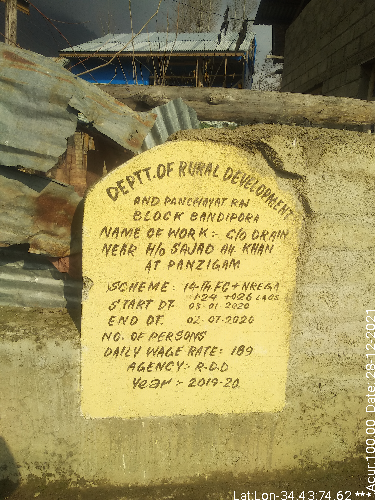 DEPTT. OF RURAL DEVELOPMENT
AND PANCHAYAT RAJ
BLOCK BANDIPORA
NAME OF WORK:- C/O DRAIN
NEAR H/O SAJAD AH. KHAN
AT PANZIGAM
SCHEME: 14-th FC + NREGA
1.24 + 026 LACS
START DT. 03-01-2020
END DT. 02-07-2020
NO. OF PERSONS
DAILY WAGE RATE: 189
AGENCY:- R.D.D
Year:- 2019-20
Acur:100.00 Date:28-12-2021
Lat:Lon-34.43:74.62 ***